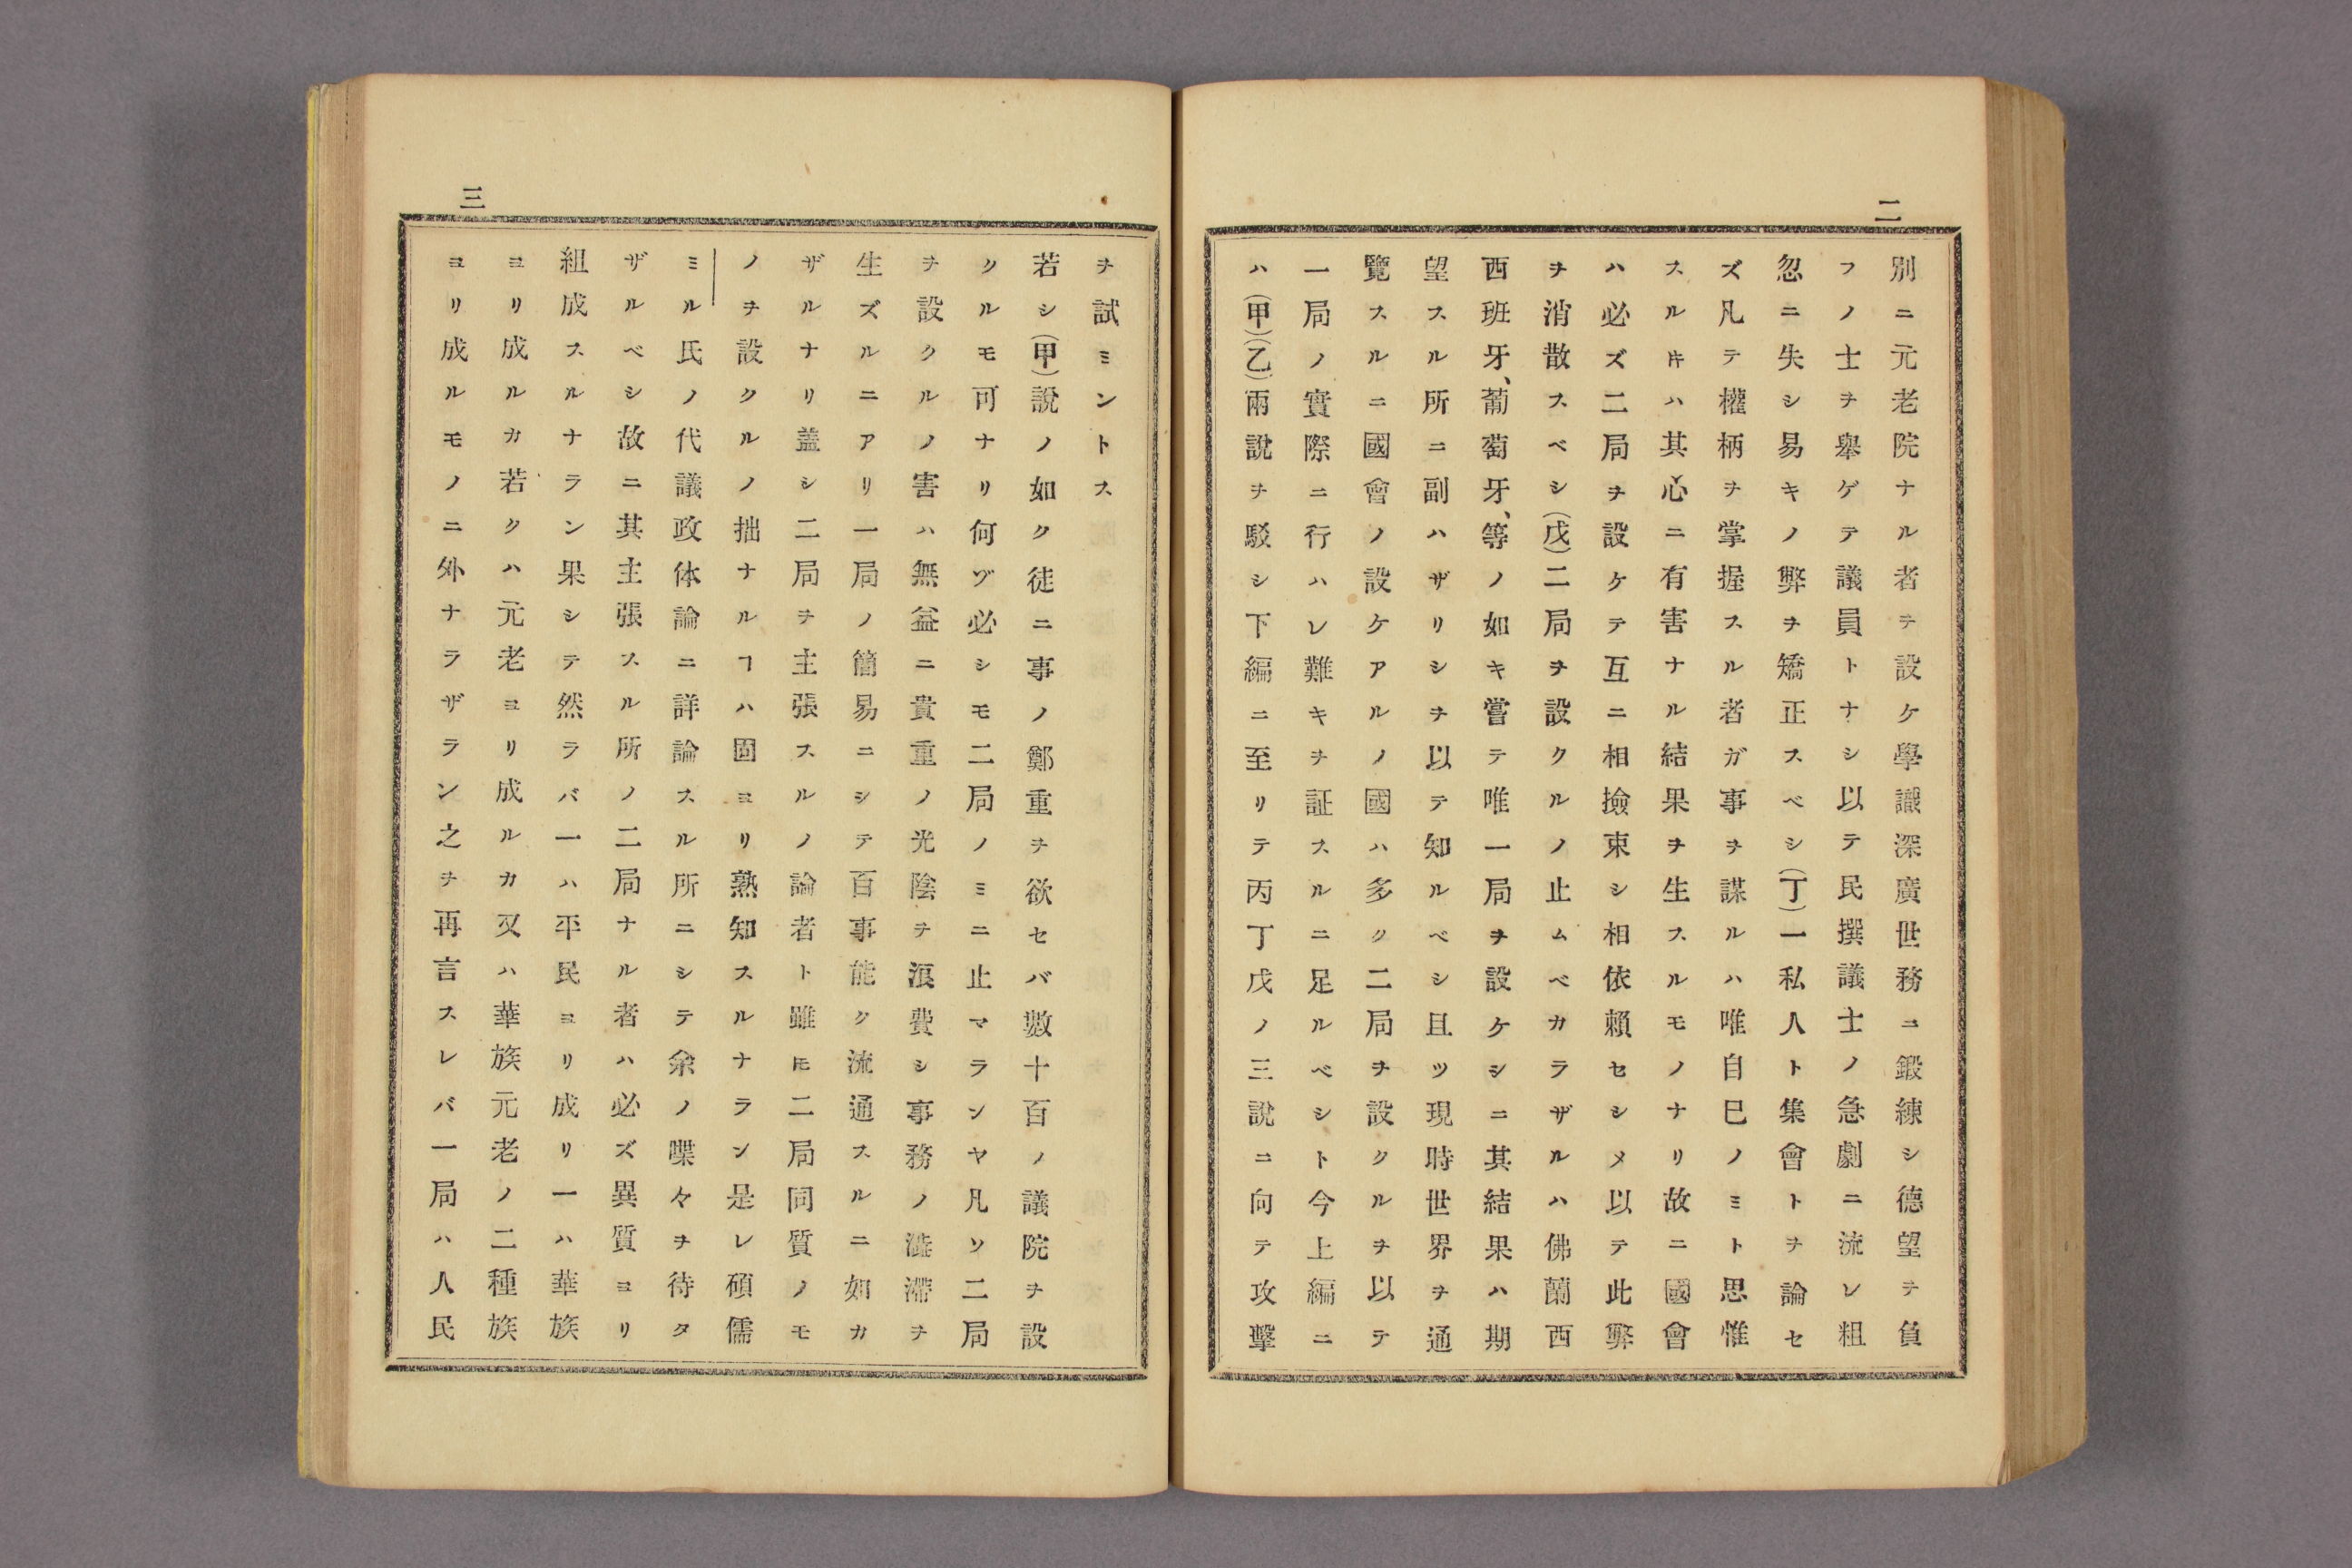 二
別ニ元老院ナル者ヲ設ケ學識深廣世務ニ鍛練シ德望ヲ負
フノ士ヲ舉ゲテ議員トナシ以テ民撰議士ノ急劇ニ流レ粗
忽ニ失シ易キノ弊ヲ矯正スベシ(丁)一私人ト集會トヲ論セ
ズ凡テ權柄ヲ掌握スル者ガ事ヲ謀ルハ唯自巳ノミト思惟
スル𪜈ハ其心ニ有害ナル結果ヲ生スルモノナリ故ニ國會
ハ必ズ二局ヲ設ケテ互ニ相撿束シ相依賴セシメ以テ此弊
ヲ消散スベシ(戊)二局ヲ設クルノ止ムベカラザルハ佛蘭西
西班牙、葡萄牙、等ノ如キ嘗テ唯一局ヲ設ケシニ其結果ハ期
望スル所ニ副ハザリシヲ以テ知ルベシ且ツ現時世界ヲ通
覽スルニ國會ノ設ケアルノ國ハ多ク二局ヲ設クルヲ以テ
一局ノ實際ニ行ハレ難キヲ証スルニ足ルベシト今上編ニ
ハ(甲)(乙)兩說ヲ駁シ下編ニ至リテ丙丁戊ノ三說ニ向テ攻擊
三
ヲ試ミントス
若シ(甲)說ノ如ク徒ニ事ノ鄭重ヲ欲セバ數十百ノ議院ヲ設
クルモ可ナリ何ヅ必シモ二局ノミニ止マランヤ凡ソ二局
ヲ設クルノ害ハ無益ニ貴重ノ光陰ヲ浪費シ事務ノ澁滯ヲ
生ズルニアリ一局ノ簡易ニシテ百事能ク流通スルニ如カ
ザルナリ蓋シ二局ヲ主張スルノ論者ト雖𪜈二局同質ノモ
ノヲ設クルノ拙ナルヿハ固ヨリ熟知スルナラン是レ碩儒
ミル氏ノ代議政体論ニ詳論スル所ニシテ余ノ喋々ヲ待タ
ザルベシ故ニ其主張スル所ノ二局ナル者ハ必ズ異質ヨリ
組成スルナラン果シテ然ラバ一ハ平民ヨリ成リ一ハ華族
ヨリ成ルカ若クハ元老ヨリ成ルカ又ハ華族元老ノ二種族
ヨリ成ルモノニ外ナラザラン之ヲ再言スレバ一局ハ人民